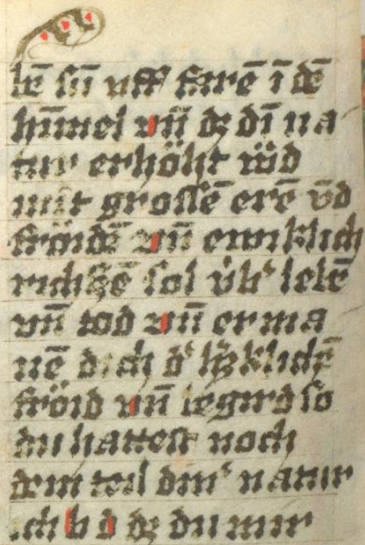 lē sūn uff farē ī dē
him̄el vn̄ dz dī na
tur erhöht wͤd
mit grossē erē vn̄d
fröidē vn̄ ewiklich
richssē sol üb' lebē
vn̄ tod vn̄ erma
nē dich d' h'tzklichē
fröid vn̄ begird so
du hattest noch
dem teil din' natur
ich b b dz du mir